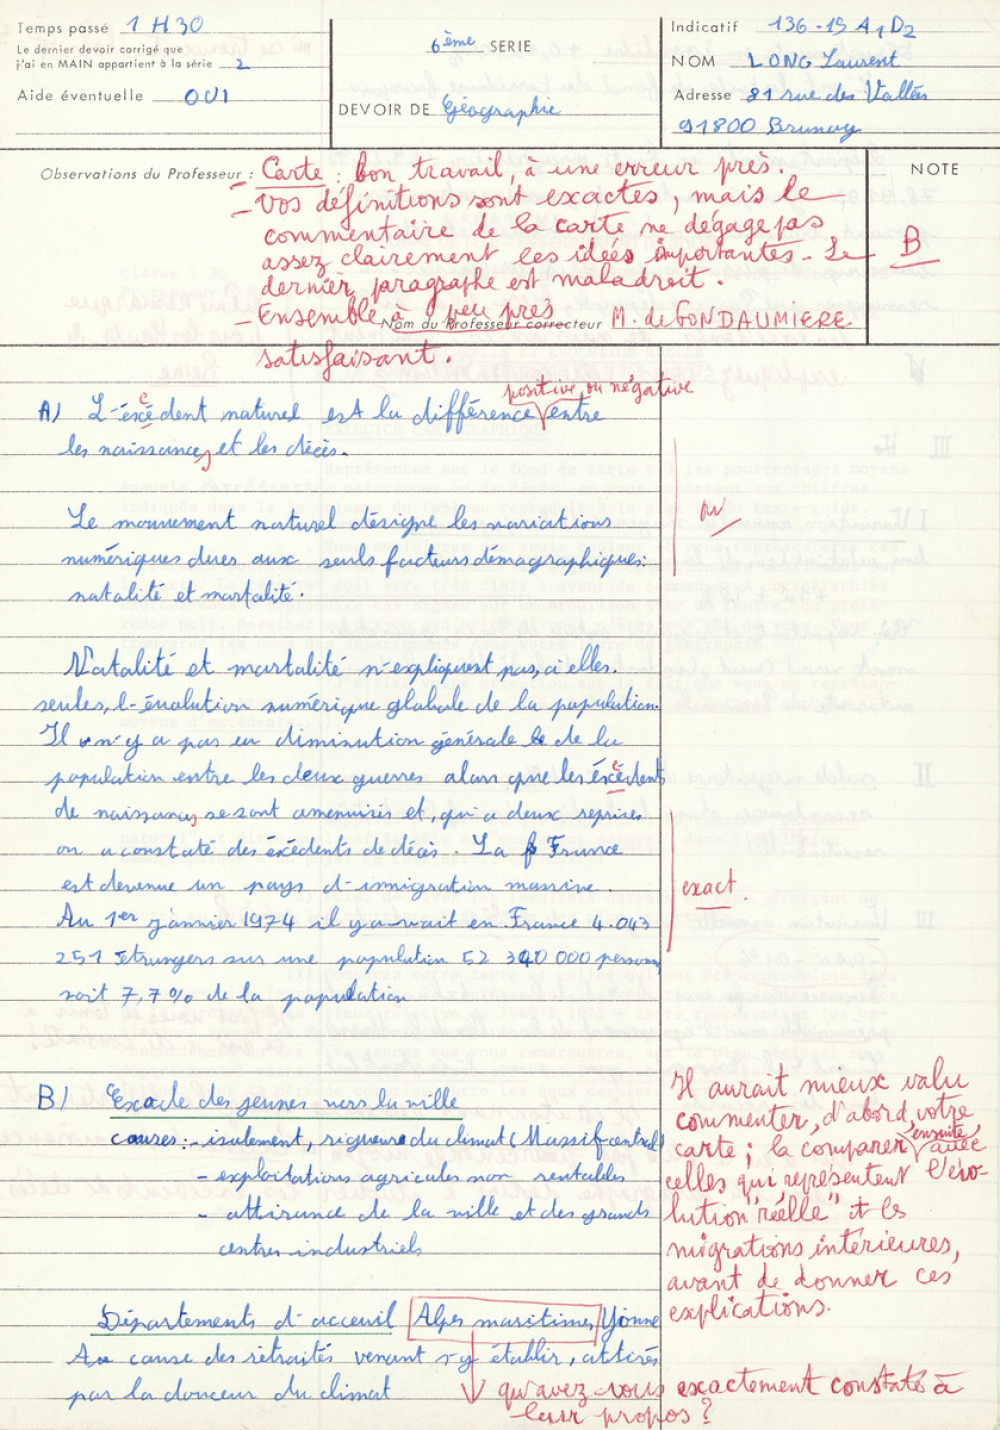 Temps passé 1 H 30
Le dernier devoir corrigé que
j'ai en MAIN appartient à la série 2
Aide éventuelle OUI
6ème SERIE
DEVOIR DE Géographie
Indicatif 136-19 A1D2
NOM LONG Laurent
Adresse 81 rue des Vallées
91800 Brunoy
Observations du Professeur :
- Carte : bon travail, à une erreur près.
- Vos définitions sont exactes, mais le
commentaire de la carte ne dégage pas
assez clairement les idées importantes - Le
dernier paragraphe est maladroit.
- Ensemble à peu près
satisfaisant.
Nom du Professeur correcteur M. de GONDAUMIERE
NOTE
B
positive ou négative
A) L'éxcédent naturel est la différence entre
les naissances, et les décès.
Le mouvement naturel désigne les variations
numériques dues aux seuls facteurs démographiques:
natalité et mortalité.
ou
Natalité et mortalité n'expliquent pas, à elles.
seules, l'évolution numérique globale de la population.
Il n'y a pas eu diminution générale de la
population entre les deux guerres alors que les éxcédents
de naissances se sont amenuisés et, qu'a deux reprises
on a constaté des éxédents de décès. La France
est devenue un pays d'immigration massive.
Au 1er janvier 1974 il y avait en France 4.043
251 étrangers sur une population 52 340 000 personnes
soit 7,7% de la population
exact.
B) Exode des jeunes vers la ville
causes: - isolement, rigueur du climat (Massif central)
- exploitations agricoles non rentables
- attirance de la ville et des grands
centres industriels
Il aurait mieux valu
commenter, d'abord, votre
carte ; la comparer ensuite avec
celles qui représentent l'évo-
lution "réelle" et les
migrations intérieures,
avant de donner ces
explications.
Départements d'acceuil Alpes maritimes Yonne
A cause des retraités venant s'y établir, attirés
par la douceur du climat
qu'avez-vous exactement constaté à
leur propos ?